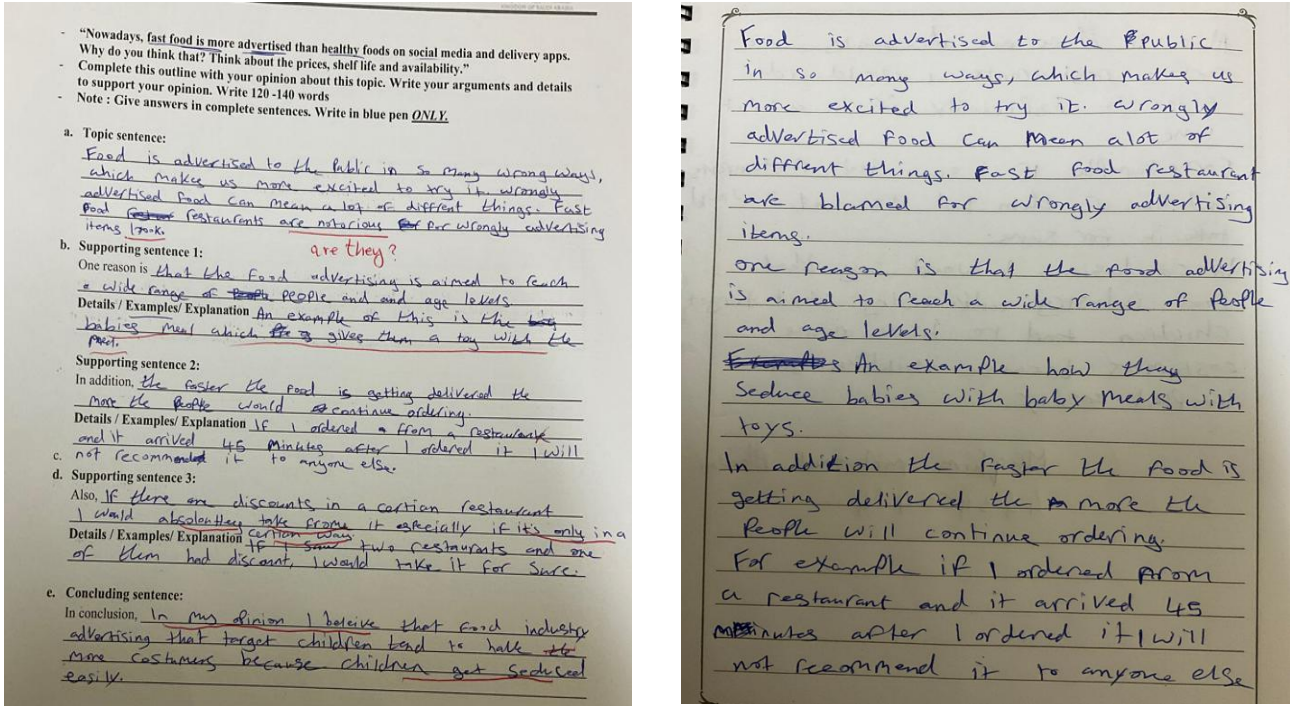 KINGDOM OF SAUDI ARABIA
- "Nowadays, fast food is more advertised than healthy foods on social media and delivery apps.
Why do you think that? Think about the prices, shelf life and availability."
- Complete this outline with your opinion about this topic. Write your arguments and details
to support your opinion. Write 120 -140 words
- Note : Give answers in complete sentences. Write in blue pen ONLY.
a. Topic sentence:
Food is advertised to the Public in so many wrong ways,
which makes us more excited to try it. wrongly
advertised food can mean a lot of diffrent things. Fast
food restaurants are notorious for for wrongly advertising
items
are they?
b. Supporting sentence 1:
One reason is that the food advertising is aimed to reach
a wide range of people and and age levels
Details / Examples/ Explanation An example of this is the
babies meal which gives them a toy with the
Supporting sentence 2:
In addition, the faster the food is getting delivered the
more the people would continue ordering.
Details / Examples/ Explanation If I ordered from a restaurant
and it arrived 45 minutes after I ordered it I will
c. not recommend it to anyone else.
d. Supporting sentence 3:
Also, If there are discounts in a certian restaurant
I would absoloutley take frome it especially if it's only in a
certian way.
Details / Examples/ Explanation If I saw two restaurants and one
of them had discount, I would take it for sure.
e. Concluding sentence:
In conclusion, In my opinion I beleive that food industry
advertising that target children tend to have
more costumers because children get seduced
easily.
Food is advertised to the public
in so many ways, which makes us
more excited to try it. wrongly
advertised food can mean alot of
diffrent things. Fast food restaurant
are blamed for wrongly advertising
items.
one reason is that the food advertising
is aimed to reach a wide range of people
and age levels.
An example how they
seduce babies with baby meals with
toys.
In addition the faster the food is
getting delivered the more the
people will continue ordering.
For example if I ordered from
a restaurant and it arrived 45
minutes after I ordered it I will
not recommend it to anyone else